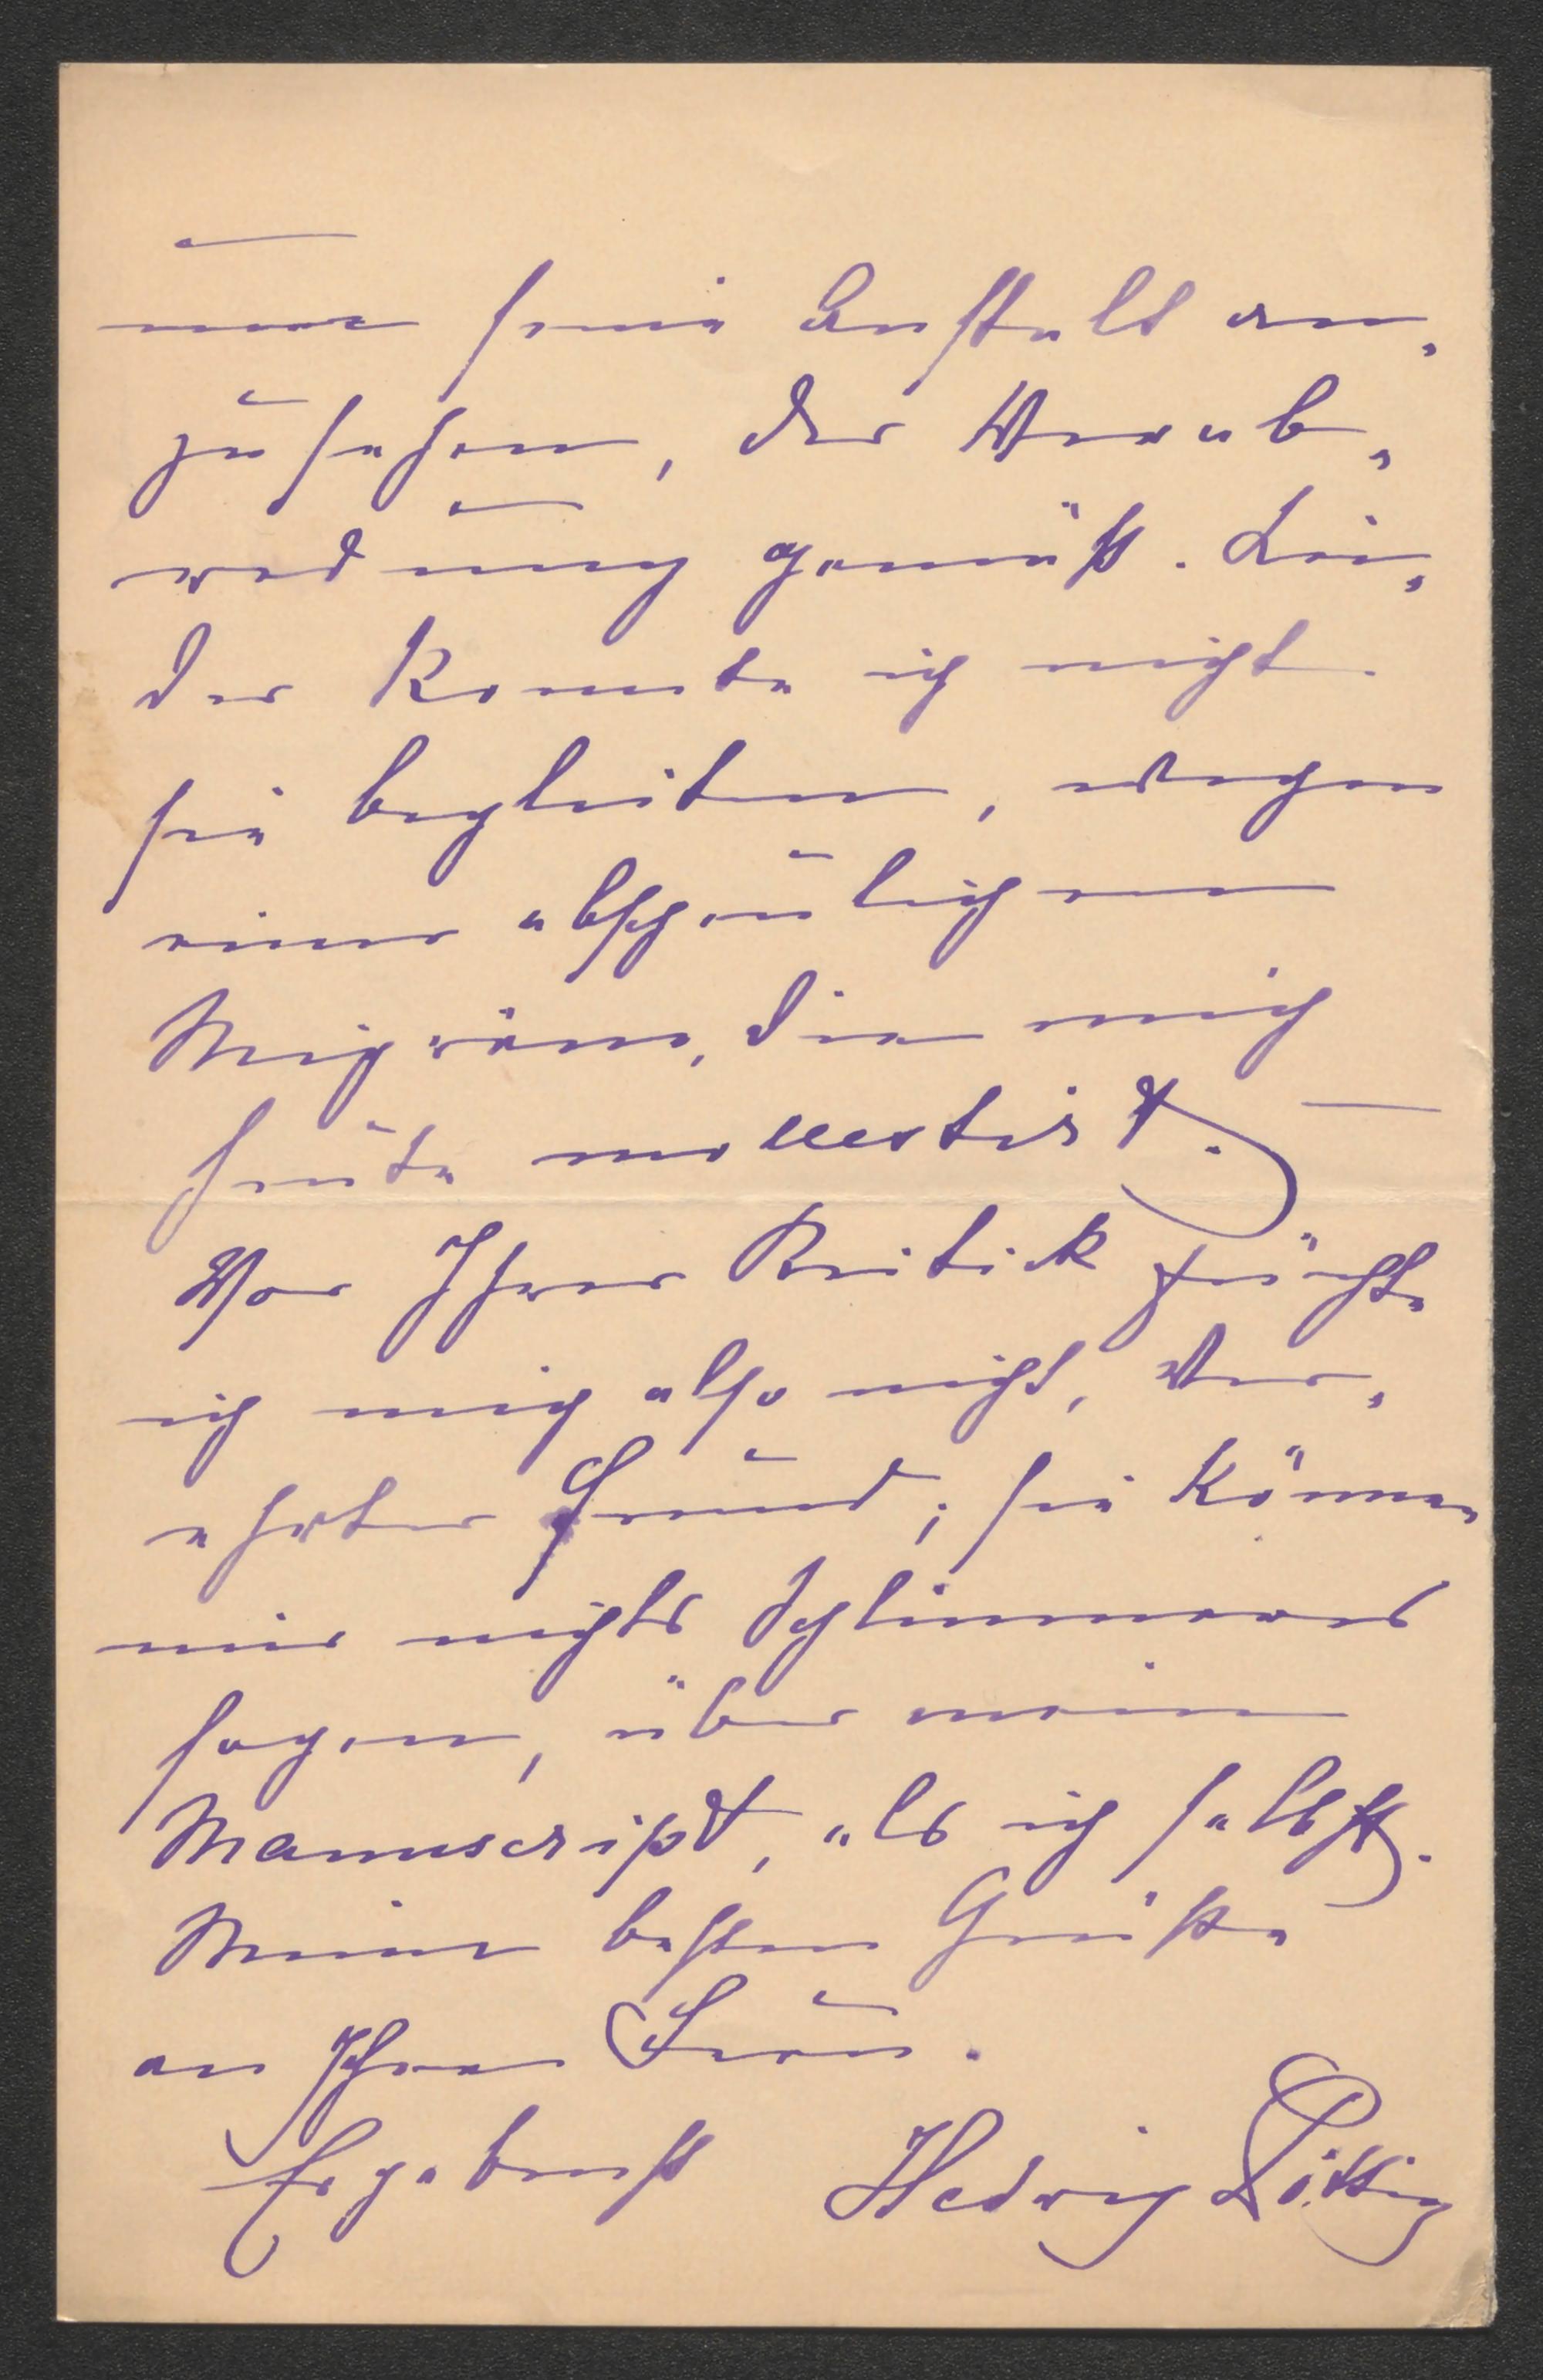 Anstalt an,
zusehen, der Verab,
redung gemäß. Lei,
der konnte ich nicht
sie begleiten, wegen
einer abscheulichen
Migräne, die mich
heute mollestirt. —
Vor Ihrer Kritick fürchte
ich mich also nicht, Ver,
ehrter Freund; sie können
mir nichts Schlimmeres
sagen, über mein
Manuscript, als ich selbst.
Meine besten Grüße
an Ihre Frau.
Ergebenst Hedwig Pötting